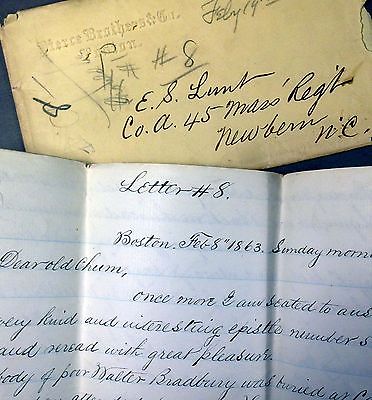 Pierce Brothers & Co.
Boston.
Feby 19
# 8
E. S. Lunt
Co. A. 45 Mass Regt
Newbern
N.C.
Letter # 8.
Boston. Feb 8" 1863. Sunday morn
Dear old Chum,
Once more I am seated to ans
very kind and interesting epistle number 5
and reread with great pleasure.
body of poor Walter Bradbury was buried at C